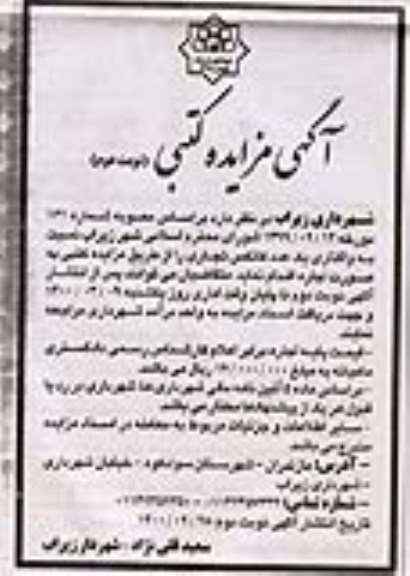 آگهی مزایده کتبی (نوبت دوم)
شهرداری زیراب در نظر دارد براساس مصوبه شماره
مورخه شورای محترم اسلامی شهر زیراب نسبت
به واگذاری یک عدد کانکس تجاری را از طریق مزایده کتبی به
صورت اجاره اقدام نماید. متقاضیان می توانند پس از انتشار
آگهی نوبت دوم تا پایان وقت اداری روز یکشنبه
و جهت دریافت اسناد مزایده به واحد درآمد شهرداری مراجعه
نمایند.
- قیمت پایه اجاره برابر اعلام کارشناس رسمی دادگستری
ماهیانه به مبلغ ریال می باشد.
- براساس ماده ۵ آئین نامه مالی شهرداری ها شهرداری در رد یا
قبول هر یک از پیشنهادها مختار می باشد.
- سایر اطلاعات و جزئیات مربوط به معامله در اسناد مزایده
مندرج می باشد.
- آدرس: مازندران - شهرستان سوادکوه - خیابان شهرداری
- شهرداری زیراب
- شماره تماس:
تاریخ انتشار آگهی نوبت دوم
سعید قلی نژاد - شهردار زیراب